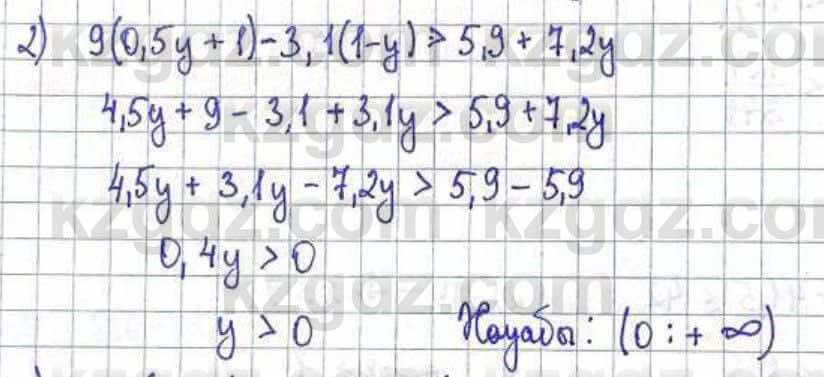 2) 9(0,5y + 1) - 3,1(1-y) > 5,9 + 7,2y
4,5y + 9 - 3,1 + 3,1y > 5,9 + 7,2y
4,5y + 3,1y - 7,2y > 5,9 - 5,9
0,4y > 0
y > 0 Жауабы: (0 : + ∞)
kzgdz.com